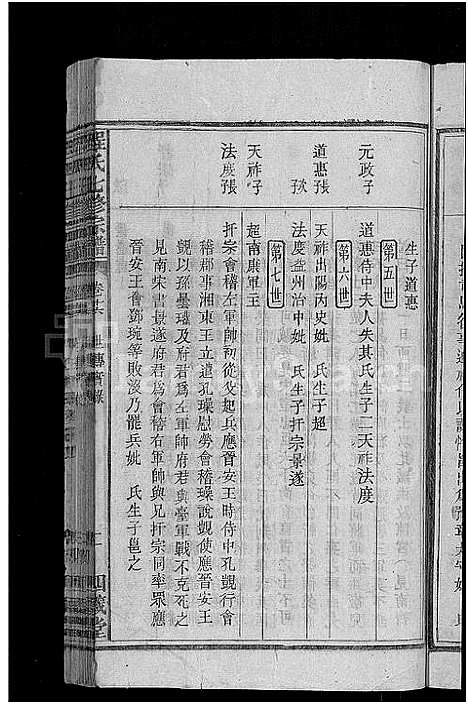 生子道惠
第五世
元政子
道惠侍中夫人失其氏生子二天祚法度
第六世
道惠長子
天祚出陽丙史妣 氏生子超
次
法度益州治中妣 氏生子扞宗景遂
第七世
天祚子
超南康軍王
法度長子
扞宗會稽右軍帥初從父起兵應晉安王時侍中孔覬行會
稽郡事湘東王立遣孔璪慰勞會稽璪說覬使應晉安王
覬以孫曇瓘及府君為左軍帥府君與臺軍戰不克死之
見南宋書景遂府君為會稽右軍帥與兄扞宗同率眾應
晉安王會鄧琬等敗沒乃罷兵妣 氏生子邕之
程氏七修宗譜
卷十六
世傳實錄
四義堂